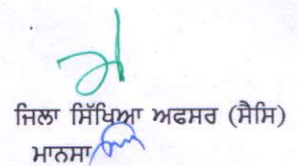 ਜਿਲਾ ਸਿੱਖਿਆ ਅਫਸਰ (ਸੈਸਿ)
ਮਾਨਸਾ